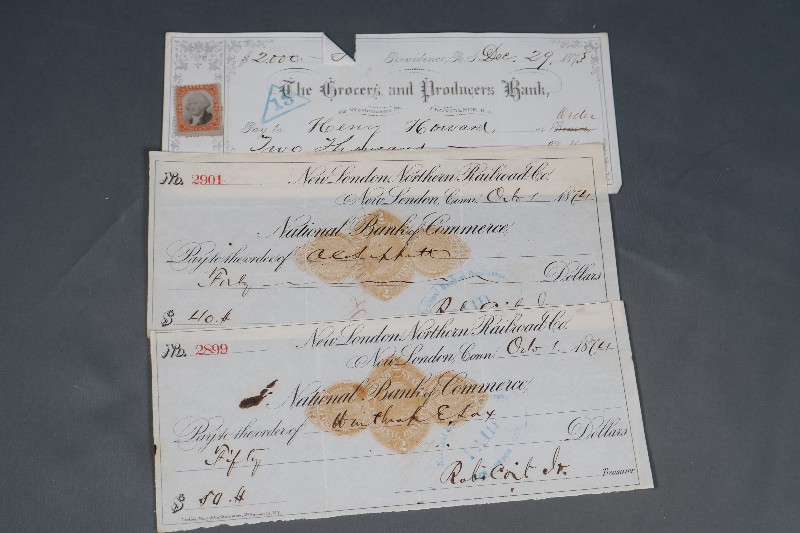 $2000 Providence, R.I. Dec. 29, 1873
The Grocers and Producers Bank,
13
PROVIDENCE, R.I.
Order
Pay to Henry Howard, or
Two Thousand
No. 2901 New London Northern Railroad Co.
New London, Conn. Oct 1 1874
National Bank of Commerce,
Pay to the order of
Forty Dollars
$ 40.#
No. 2899 New London Northern Railroad Co.
New London, Conn. Oct 1 1874
National Bank of Commerce,
Pay to the order of
PAID
Fifty Dollars
$ 50.# Robt Coit Jr. Treasurer